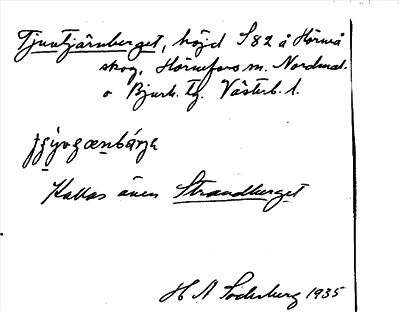 Tjuvtjärnberget, höjd S 82 å Hörnå
skog, Hörnefors m. Nordmal.
o Bjurh. tg. Västerb. l.
Kallas även Strandberget
H A Söderberg 1935